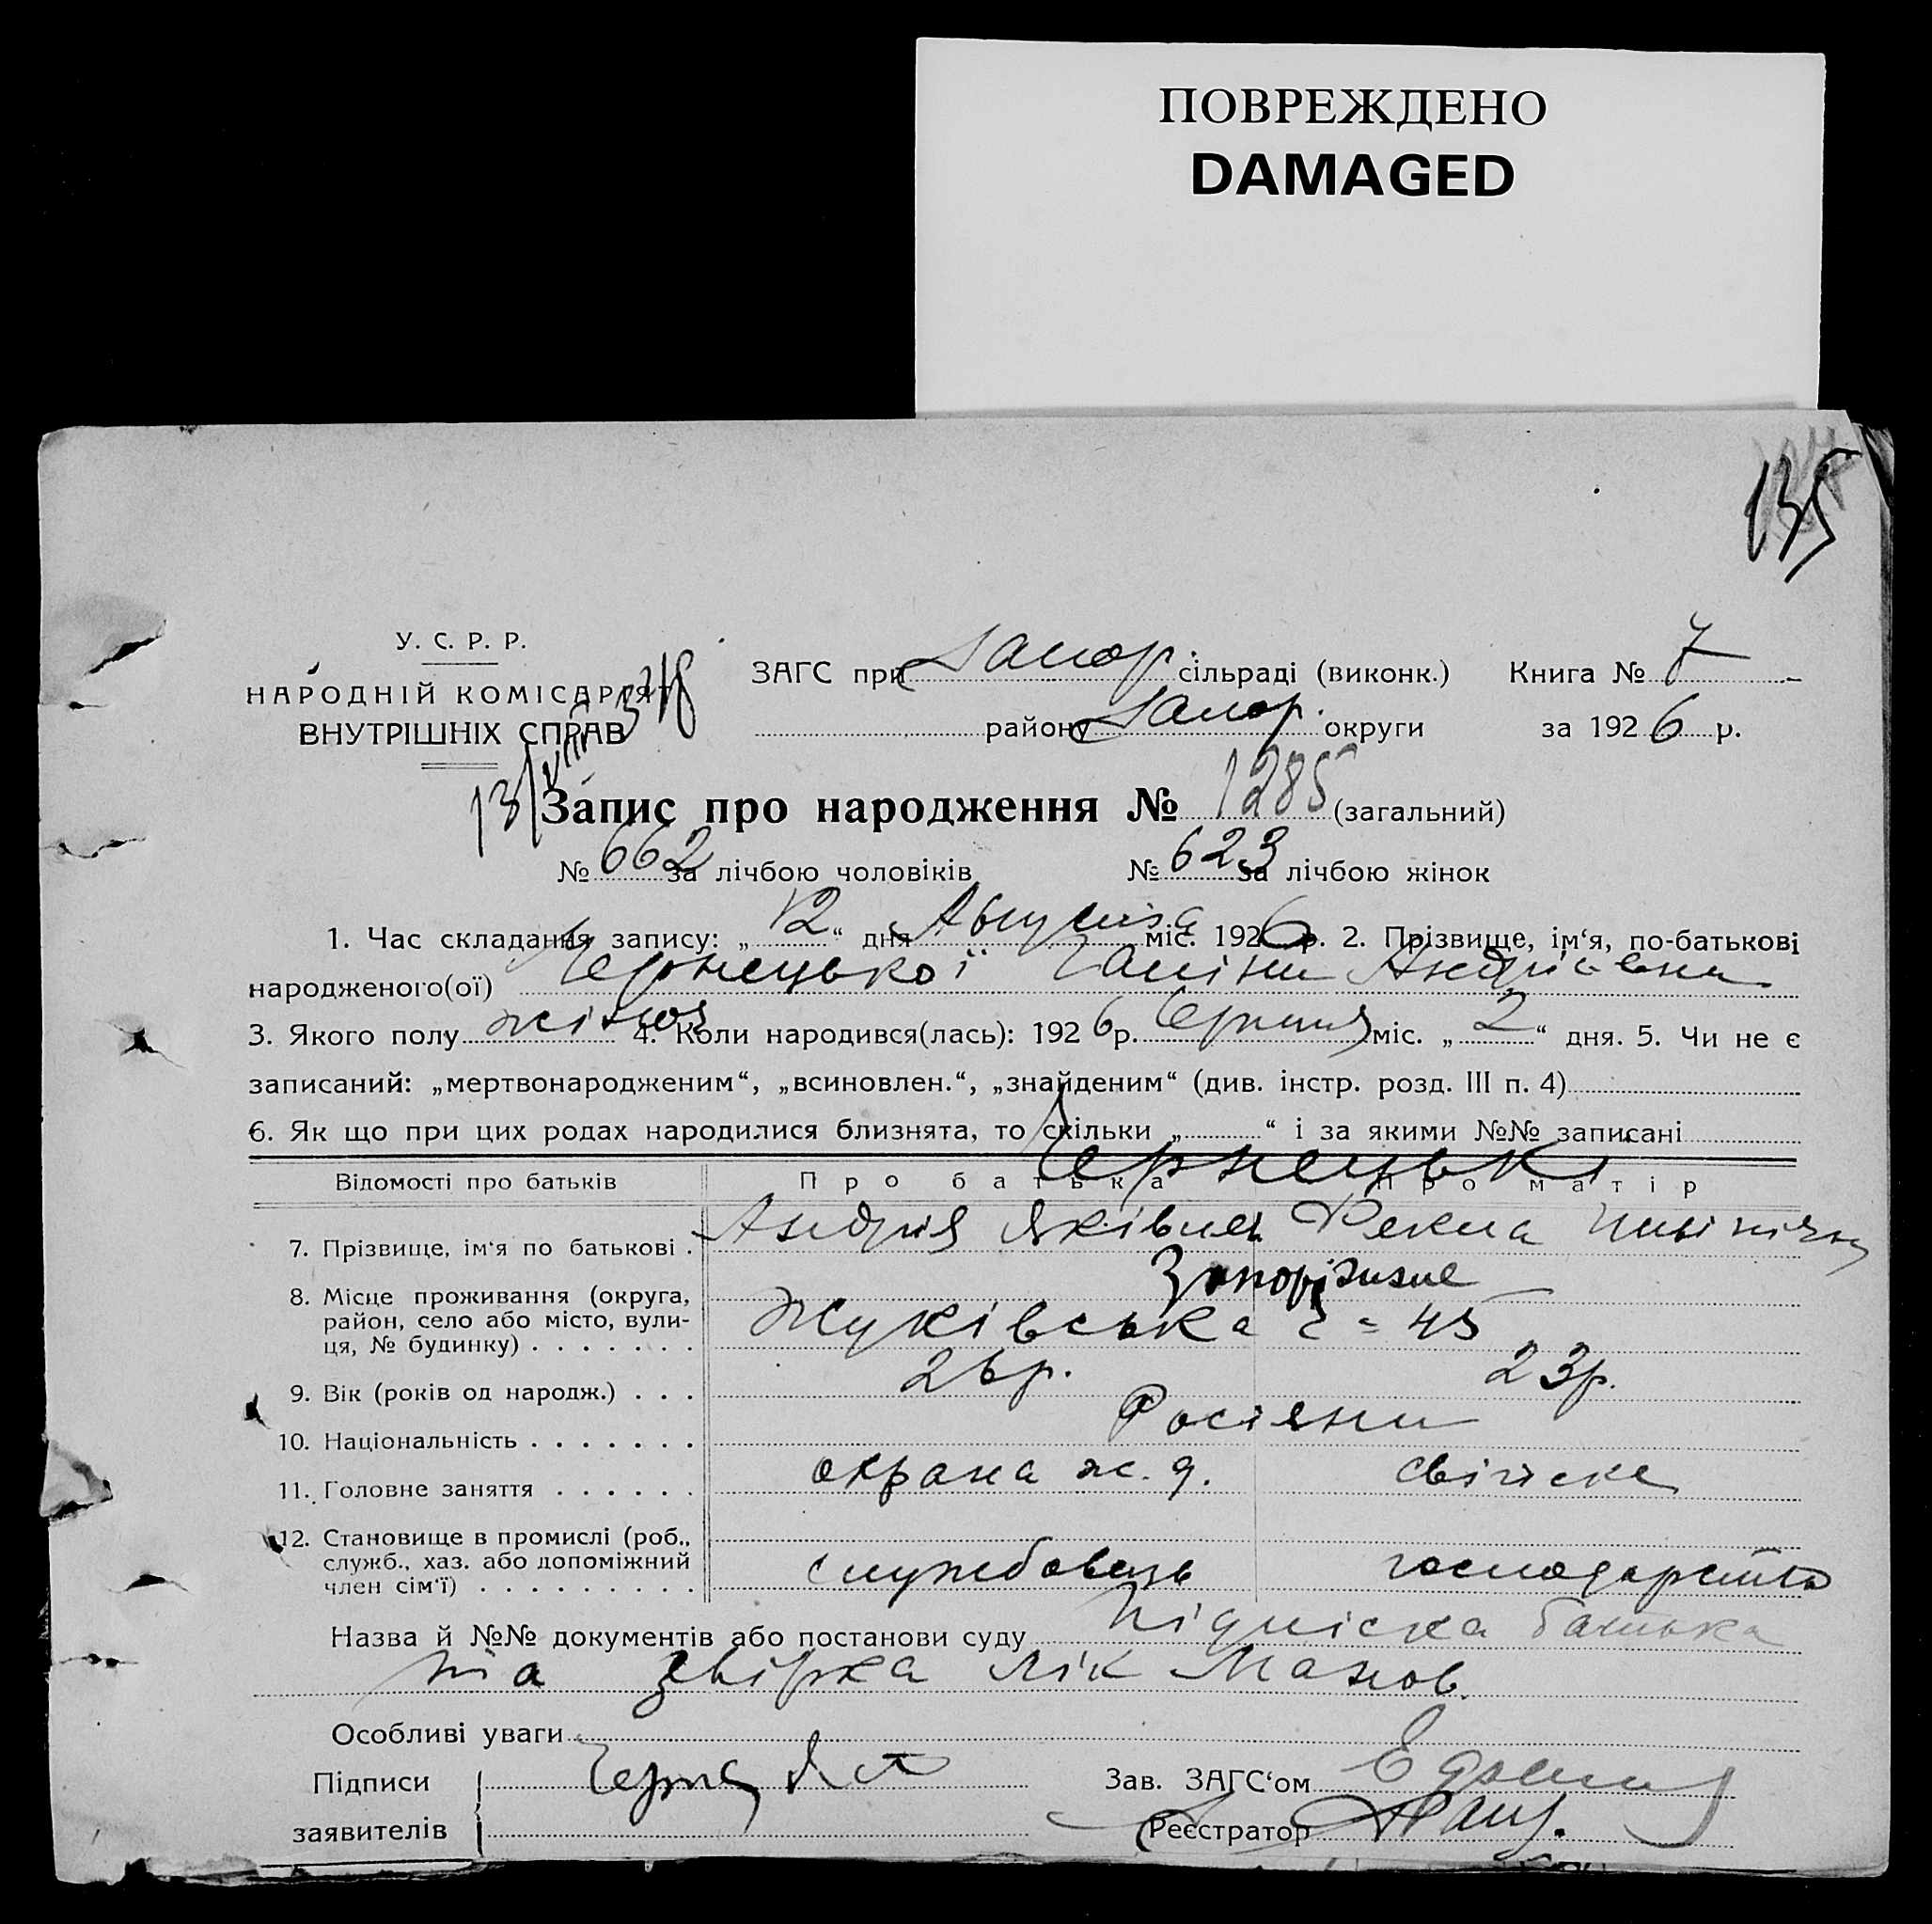 ПОВРЕЖДЕНО
DAMAGED
135
У. С. Р. Р.
НАРОДНІЙ КОМІСАРІЯТ
ВНУТРІШНІХ СПРАВ
ЗАГС при Запор. сільраді (виконк.) Книга № 7
району Запор. округи за 1926 р.
13/VIII
Запис про народження № 1285 (загальний)
№ 662 за лічбою чоловіків № 623 за лічбою жінок
1. Час складання запису: „12“ дня Августа міс. 1926 р. 2. Прізвище, ім‘я, по-батькові
народженого(ої) Чернецької Галіни Андріівни
3. Якого полу жіноч 4. Коли народився(лась): 1926 р. Серпня міс. „2“ дня. 5. Чи не є
записаний: „мертвонародженим“, „всиновлен.“, „знайденим“ (див. інстр. розд. III п. 4)
6. Як що при цих родах народилися близнята, то скільки „ “ і за якими №№ записані
Чернецькі
Відомості про батьків Про батька Про матір
7. Прізвище, ім‘я по батькові . Андрія Яківич Фекла
Запоріжжє
8. Місце проживання (округа,
район, село або місто, вули-
ця, № будинку) . . . . . . . Жуківська 45
9. Вік (років од народж.) . . . 26 р. 23 р.
10. Національність . . . . . . . Росіяни
11. Головне заняття . . . . . . охрана ж. д. свійске
12. Становище в промислі (роб.,
служб., хаз. або допоміжний
член сім‘ї) . . . . . . . . . службовець господарство
Назва й №№ документів або постанови суду Підписка батька
та звірка лік
Особливі уваги
Підписи Зав. ЗАГС‘ом
заявителів Реєстратор